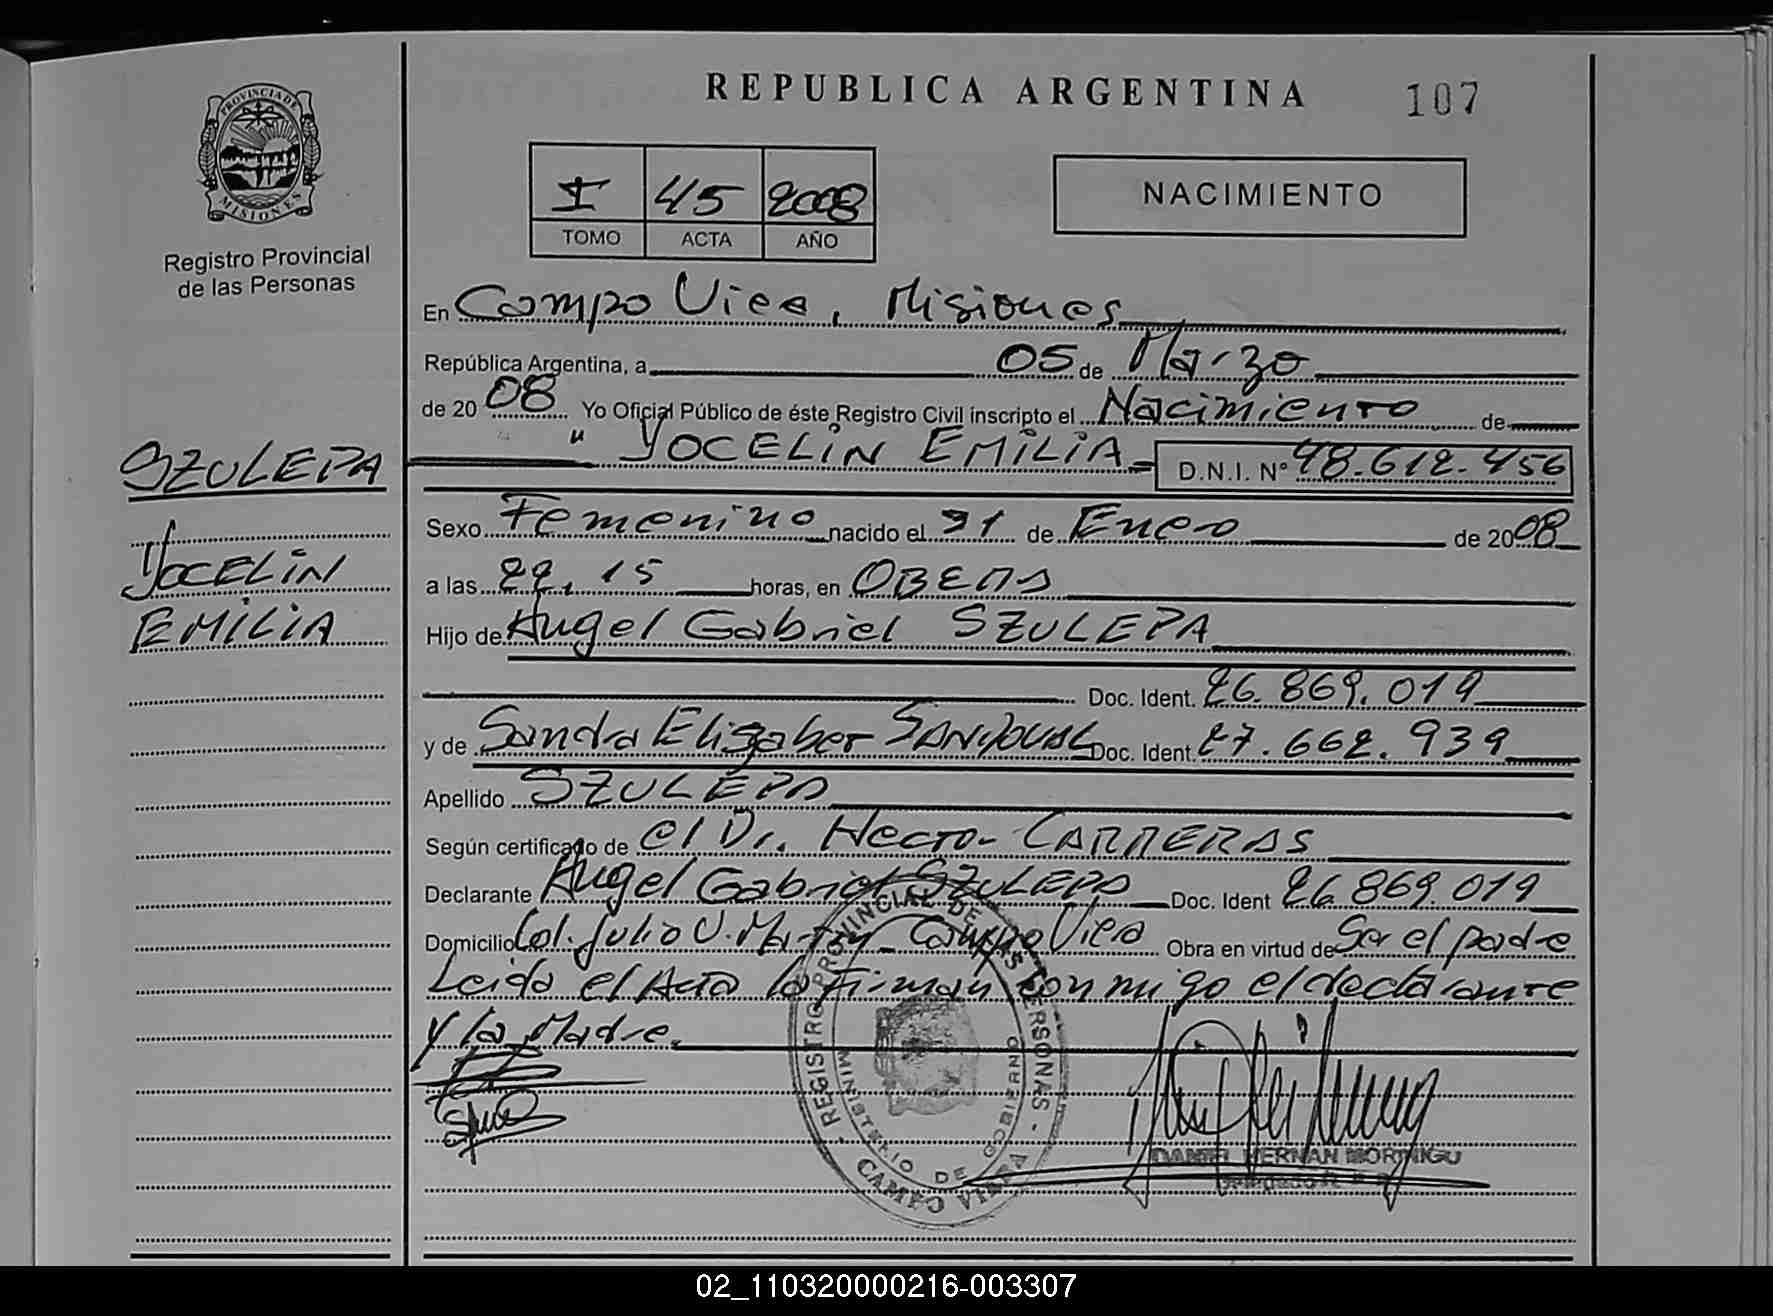 PROVINCIA DE
MISIONES
Registro Provincial
de las Personas
SZULEPA
YOCELIN
EMILIA
REPUBLICA ARGENTINA 107
I 45 2008
TOMO ACTA AÑO
NACIMIENTO
En Campo Viera, Misiones
República Argentina, a 05 de Marzo
de 20 08 Yo Oficial Público de éste Registro Civil inscripto el Nacimiento de
" YOCELIN EMILIA D.N.I. Nº 48.612.456
Sexo Femenino nacido el 31 de Enero de 20 08
a las 22,15 horas, en OBERA
Hijo de Angel Gabriel SZULEPA
Doc. Ident. 26.869.019
y de Sandra Elisabet SANDOVAL Doc. Ident. 27.662.939
Apellido SZULEPA
Según certificado de el Dr. Hector CARRERAS
Declarante Angel Gabriel SZULEPA Doc. Ident 26.869.019
Domicilio Col. Julio U. Martin Campo Viera Obra en virtud de Ser el padre
Leida el Acta la firman conmigo el declarante
y la Madre.
REGISTRO PROVINCIAL DE LAS PERSONAS
MINISTERIO DE GOBIERNO
CAMPO VIERA
DANIEL HERNAN MORINIGO
02_110320000216-003307